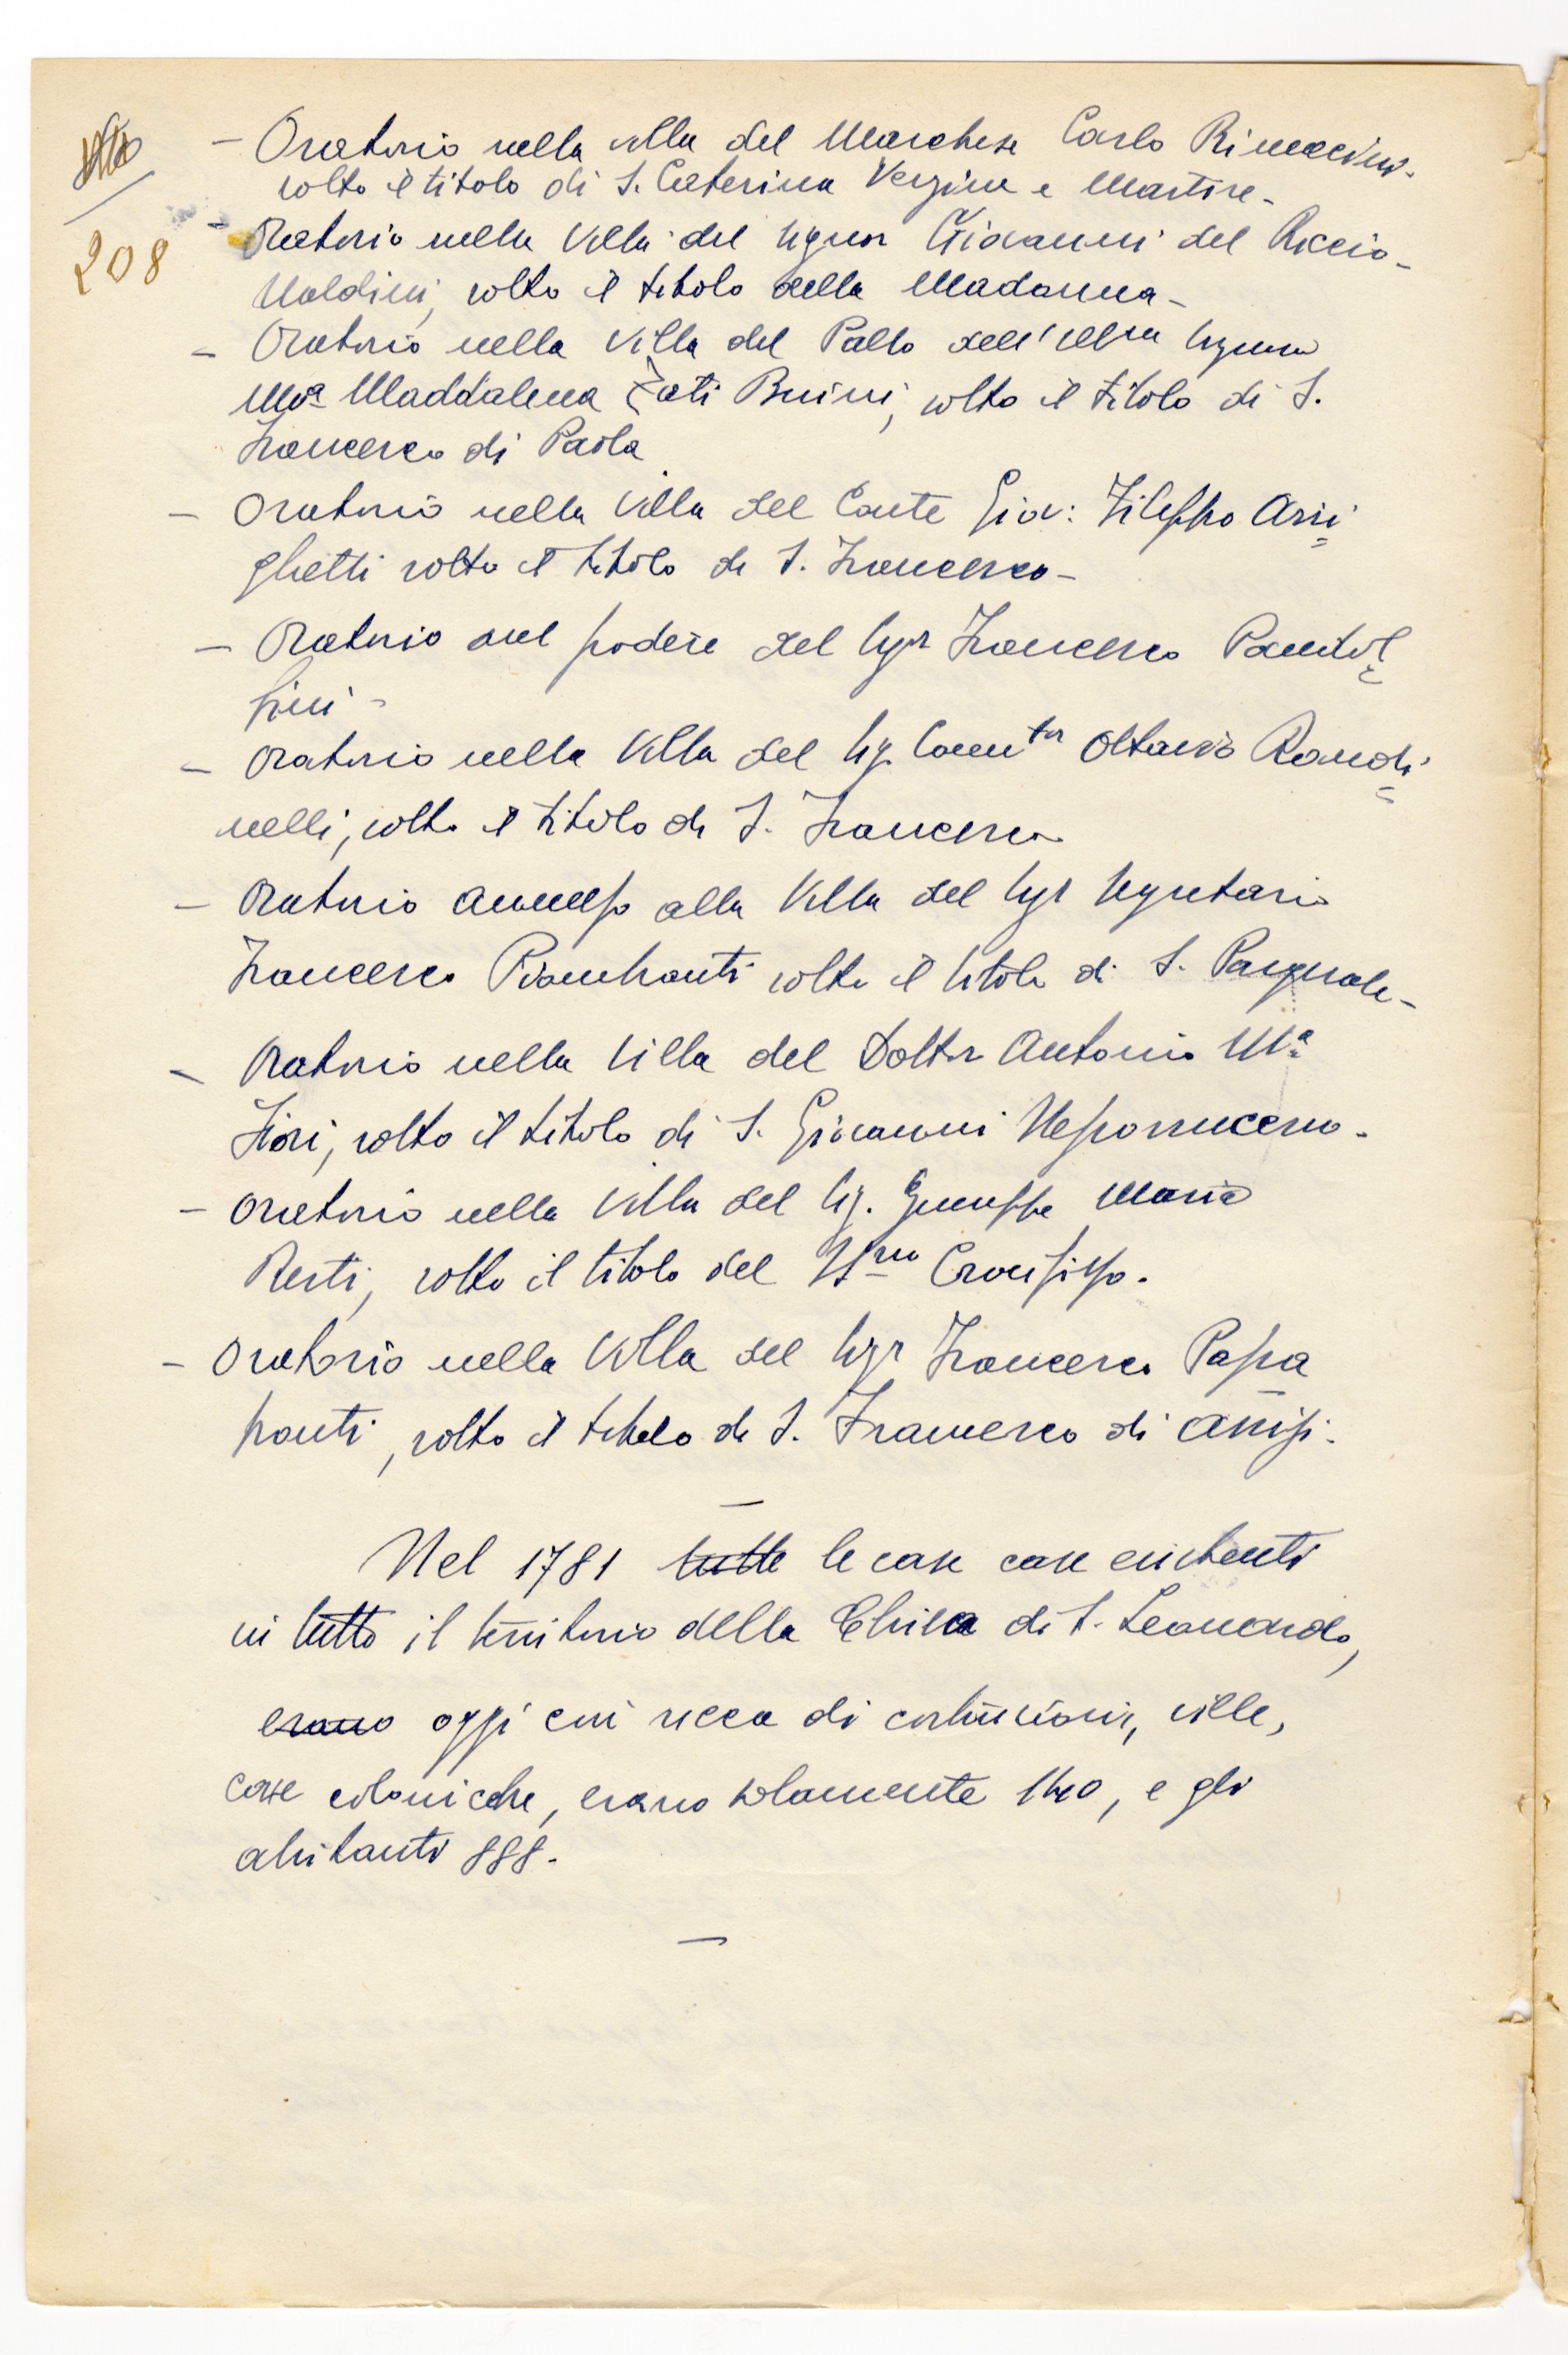 208
- Oratorio nella villa del Marchese Carlo Rinuccini.
sotto il titolo di S. Caterina Vergine e Martire -
- Oratorio nella Villa del Signor Giovanni del Riccio -
Naldini, sotto il titolo della Madonna -
- Oratorio nella Villa del Palco dell'Ill.ma Signora
M.a Maddalena Zati Buini, sotto il titolo di S.
Francesco di Paola
- Oratorio nella Villa del Conte Giov: Filippo Arri=
ghetti sotto il titolo di S. Francesco -
- Oratorio nel podere del Sigr Francesco Pandol=
fini -
- Oratorio nella Villa del Sig. Comtor Ottavio Rondi=
nelli, sotto il titolo di S. Francesco
- Oratorio annesso alla Villa del Sigr Segretario
Francesco sotto il titolo di S. Pasquale -
- Oratorio nella Villa del Dottor Antonio M.a
Fiori, sotto il titolo di S. Giovanni Nepomuceno.
- Oratorio nella Villa del Sig. Giuseppe Maria
Resti, sotto il titolo del SS.mo Crocifisso.
- Oratorio nella Villa del Sigr Francesco Papa
, sotto il titolo di S. Francesco di Assisi.
Nel 1781 tutte le case case esistenti
in tutto il territorio della Chiesa di S. Leonardo,
erano oggi così ricca di costruzioni, ville,
case coloniche, erano solamente 140, e gli
abitanti 888.